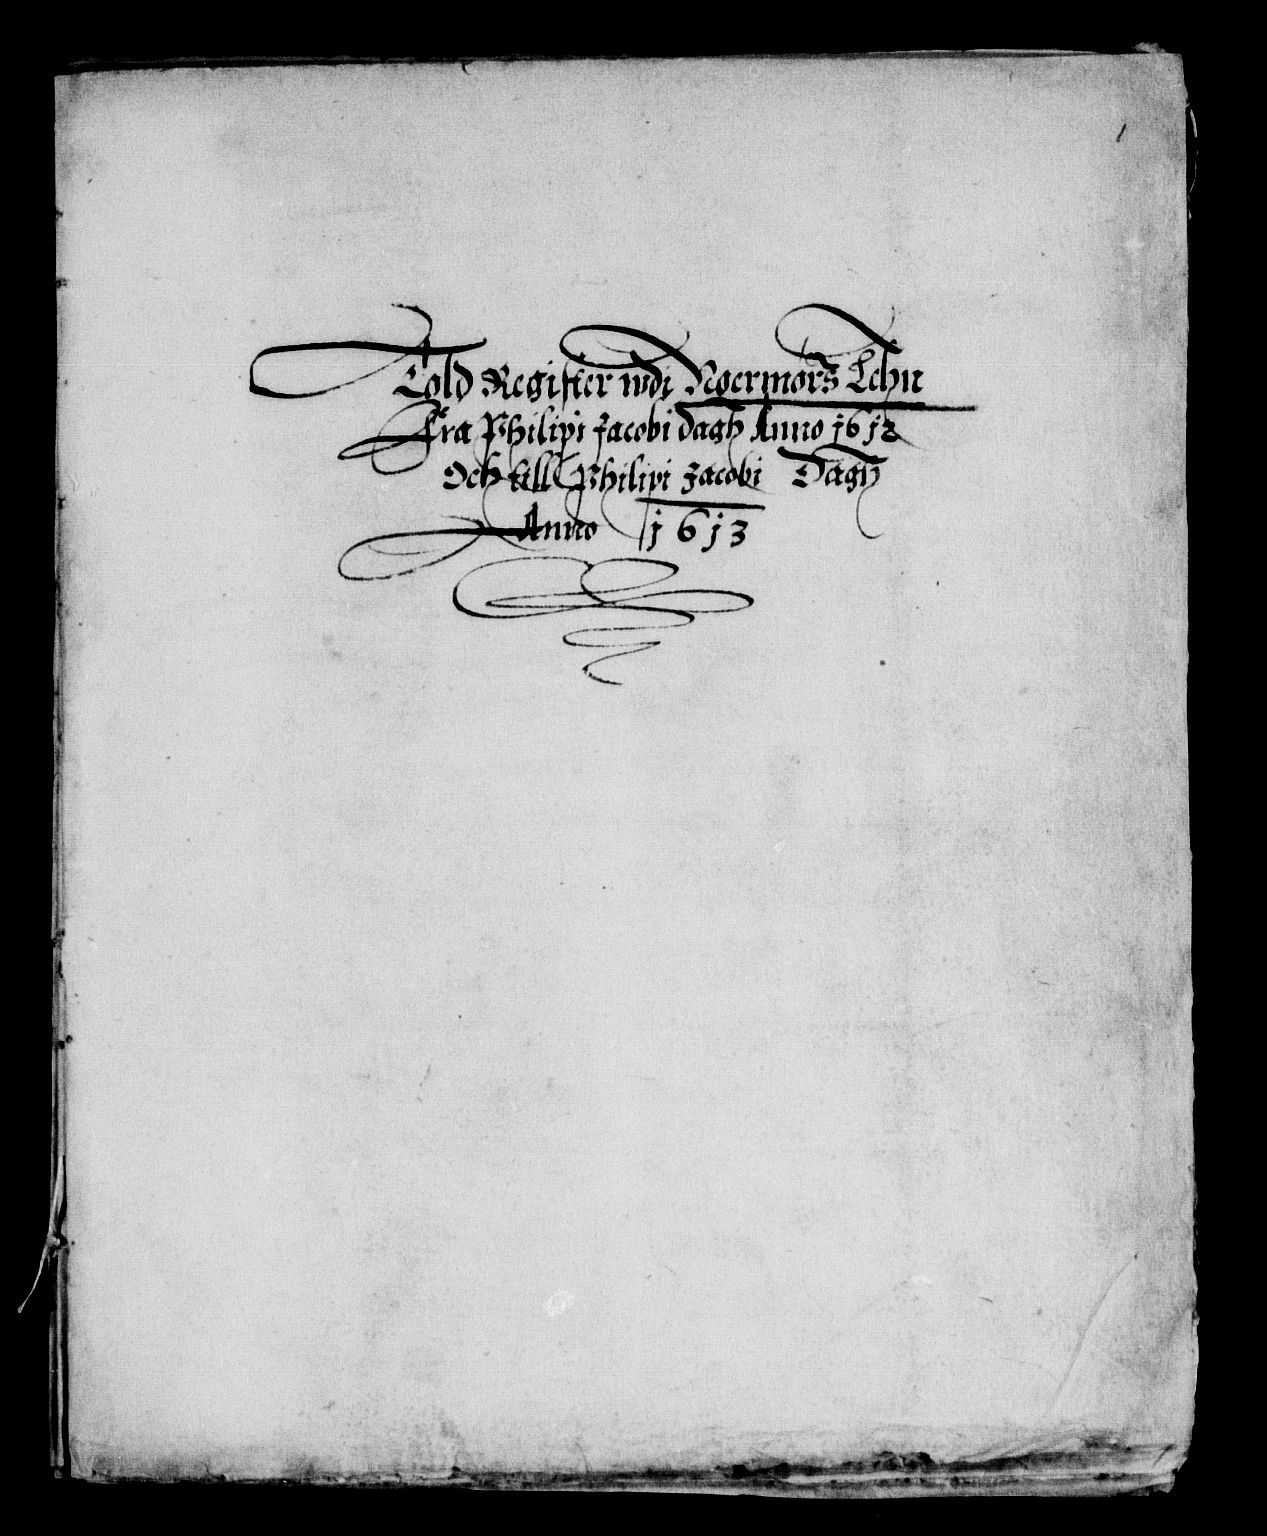 1
Told Register udi Noermørs Lehn
Fra Philipi Jacobi dagh Anno 1612
Och till Philipi Jacobi Dagh
Anno 1613